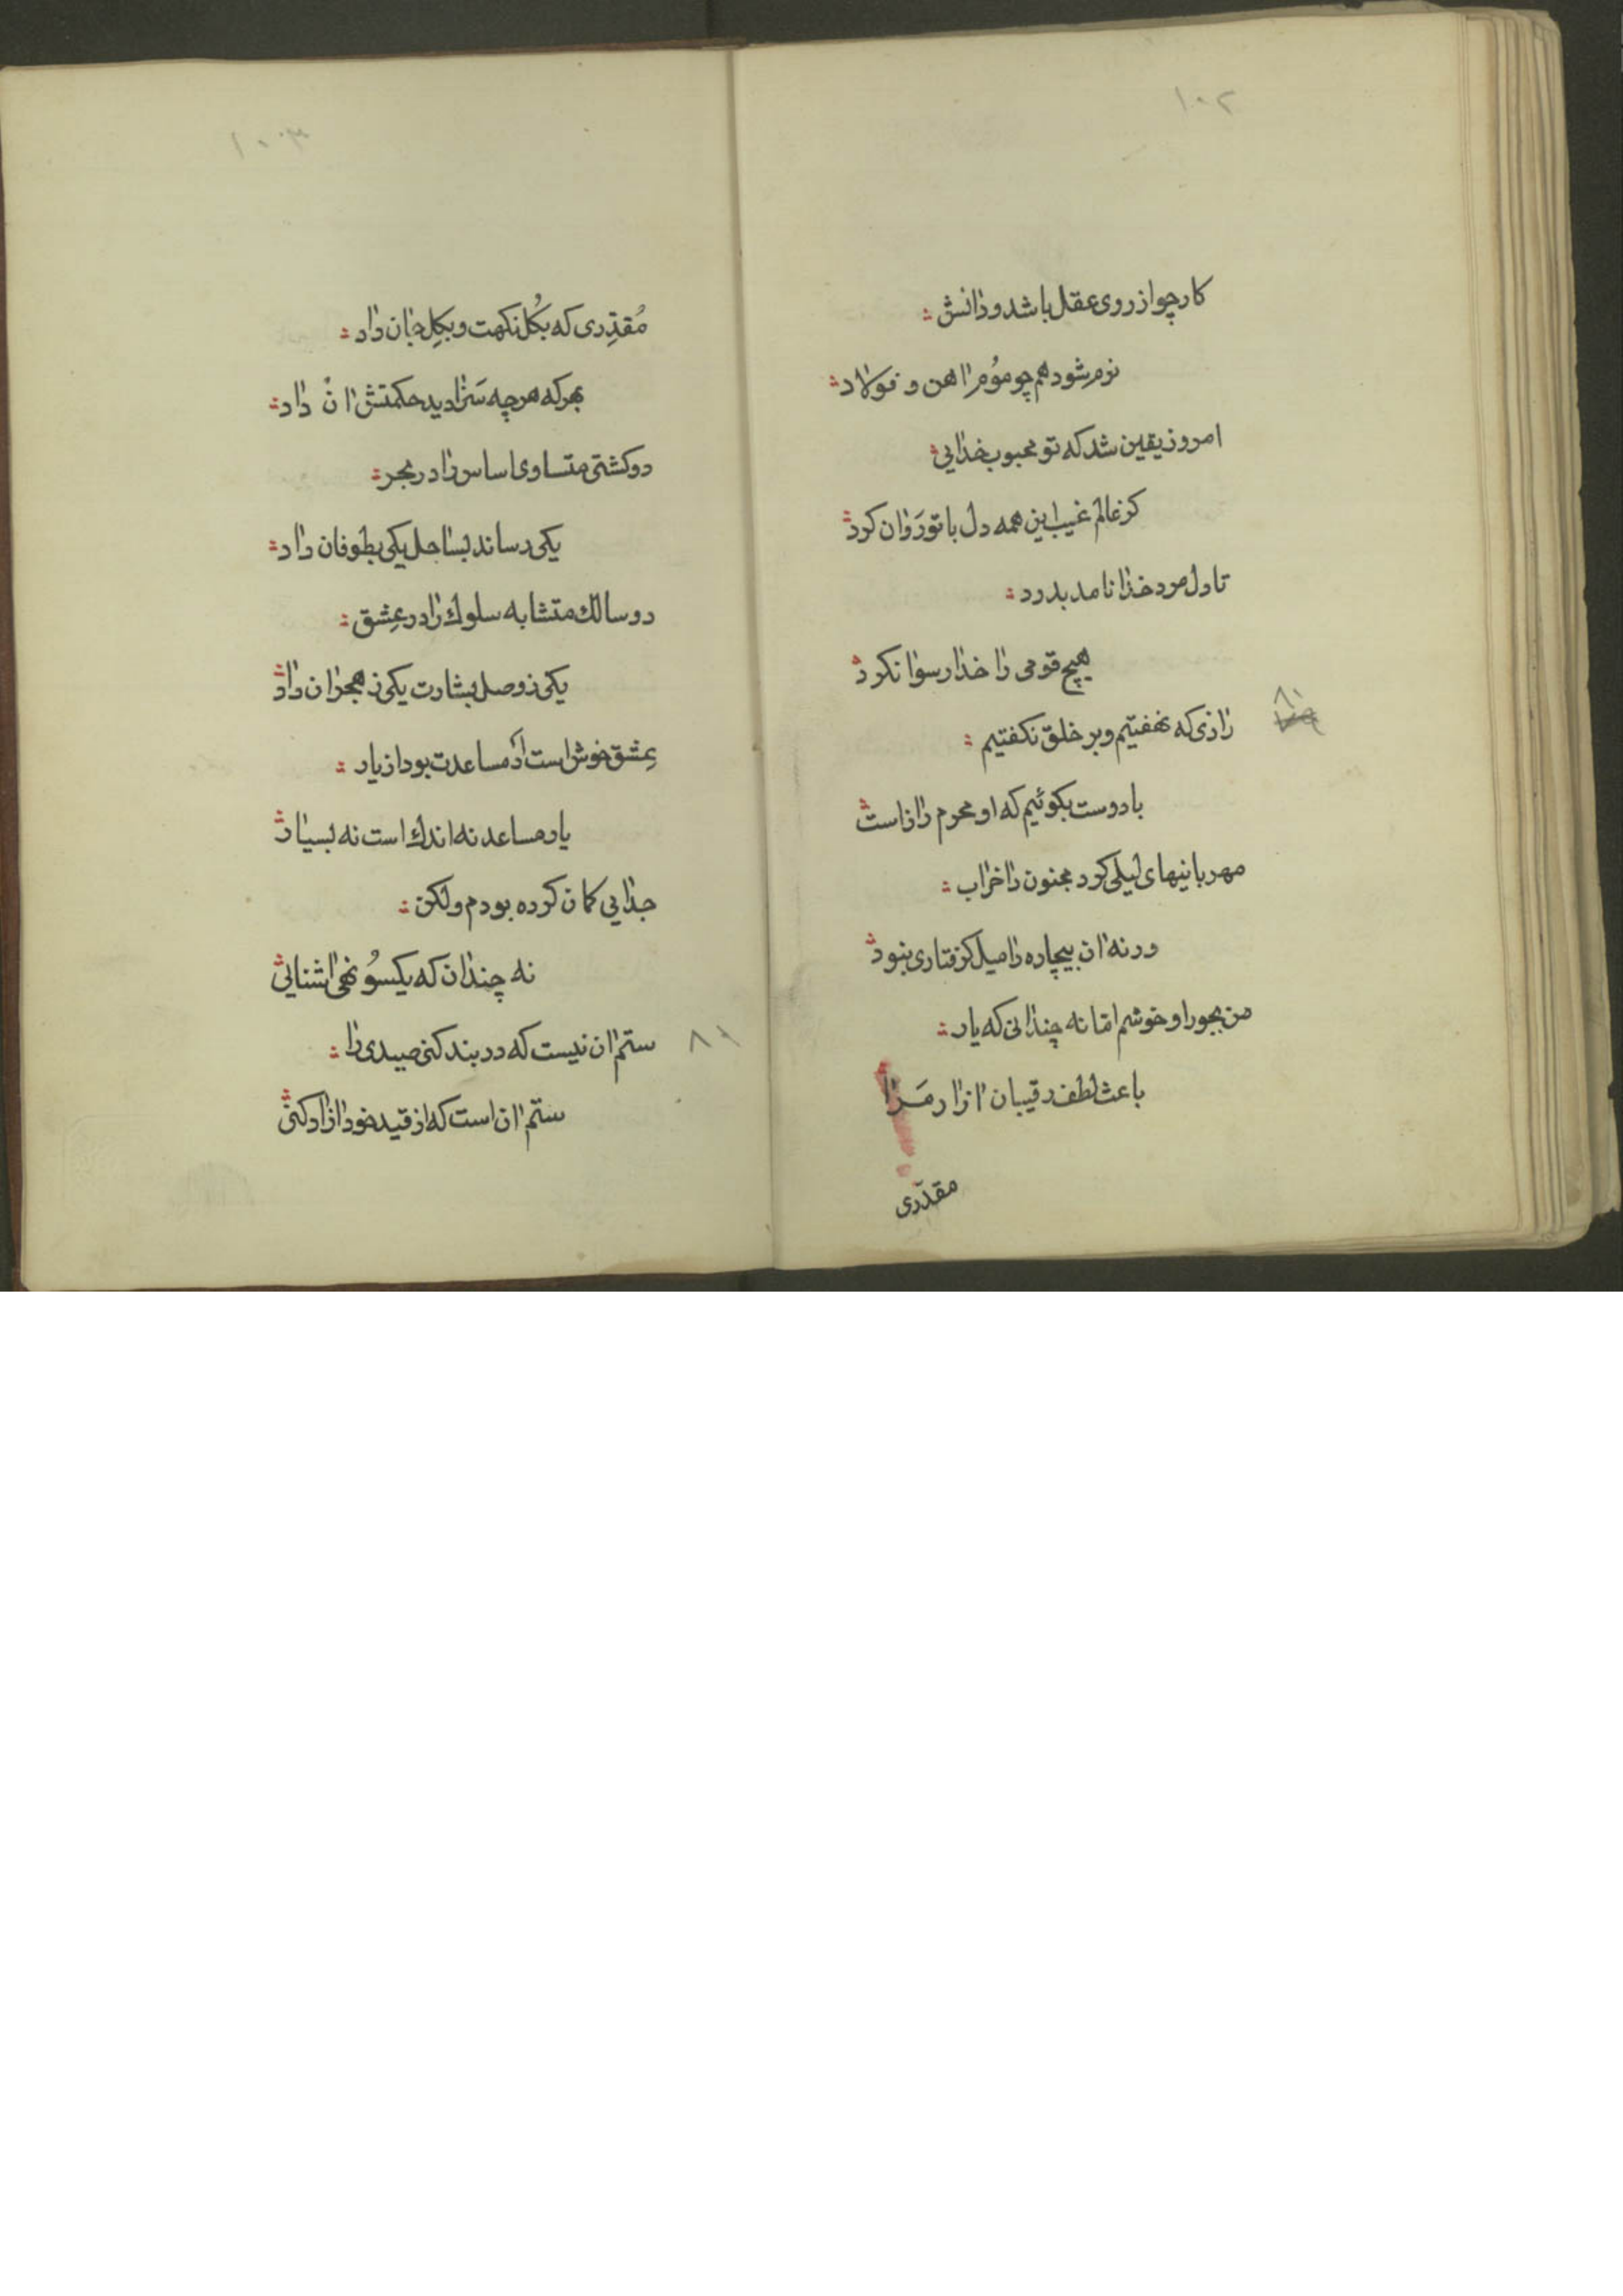 ١٠٢
كار چو از روى عقل باشد و دانش
نرم شود هم چو موُم اهن و فولاد
امروز يقين شد كه تو محبوب خدايى
كز عالم غيب اين همه دل با تو رَوان كرد
تا دل مرد خدا نامد بدرد
هيچ قومى را خدا رسوا نكرد
رازى كه نهفتيم و بر خلق نكفتيم
٨٠
با دوست بكوئيم كه او محرم راز است
مهربانيهاى ليلى كرد مجنون را خراب
ورنه ان بيچاره را ميل كرفتارى نبود
من بجور او خوشم امّا نه چندانى كه يار
باعث لطف رقيبان ازار مَرا
مقدّرى
١٠٣
مُقدِّرى كه بكُل نكهت و بكِل جان داد
بهر كه هر چه سَزا ديد حكمتش ان داد
دو كشتى متساوى اساس را در بحر
يكى رساند بساحل يكى بطوفان داد
دو سالك متشابه سلوك را در عِشق
يكى ز وصل بشارت يكى ز هجران داد
عِشق خوش است ار مساعدت بود از يار
يار مساعد نه اندك است نه بسيار
جدايى كمان كرده بودم ولكن
نه چندان كه يكسوُ نهى اشنايى
ستم ان نيست كه در بند كنى صيدى را
٨١
ستم ان است كه از قيد خود ازاد كنى